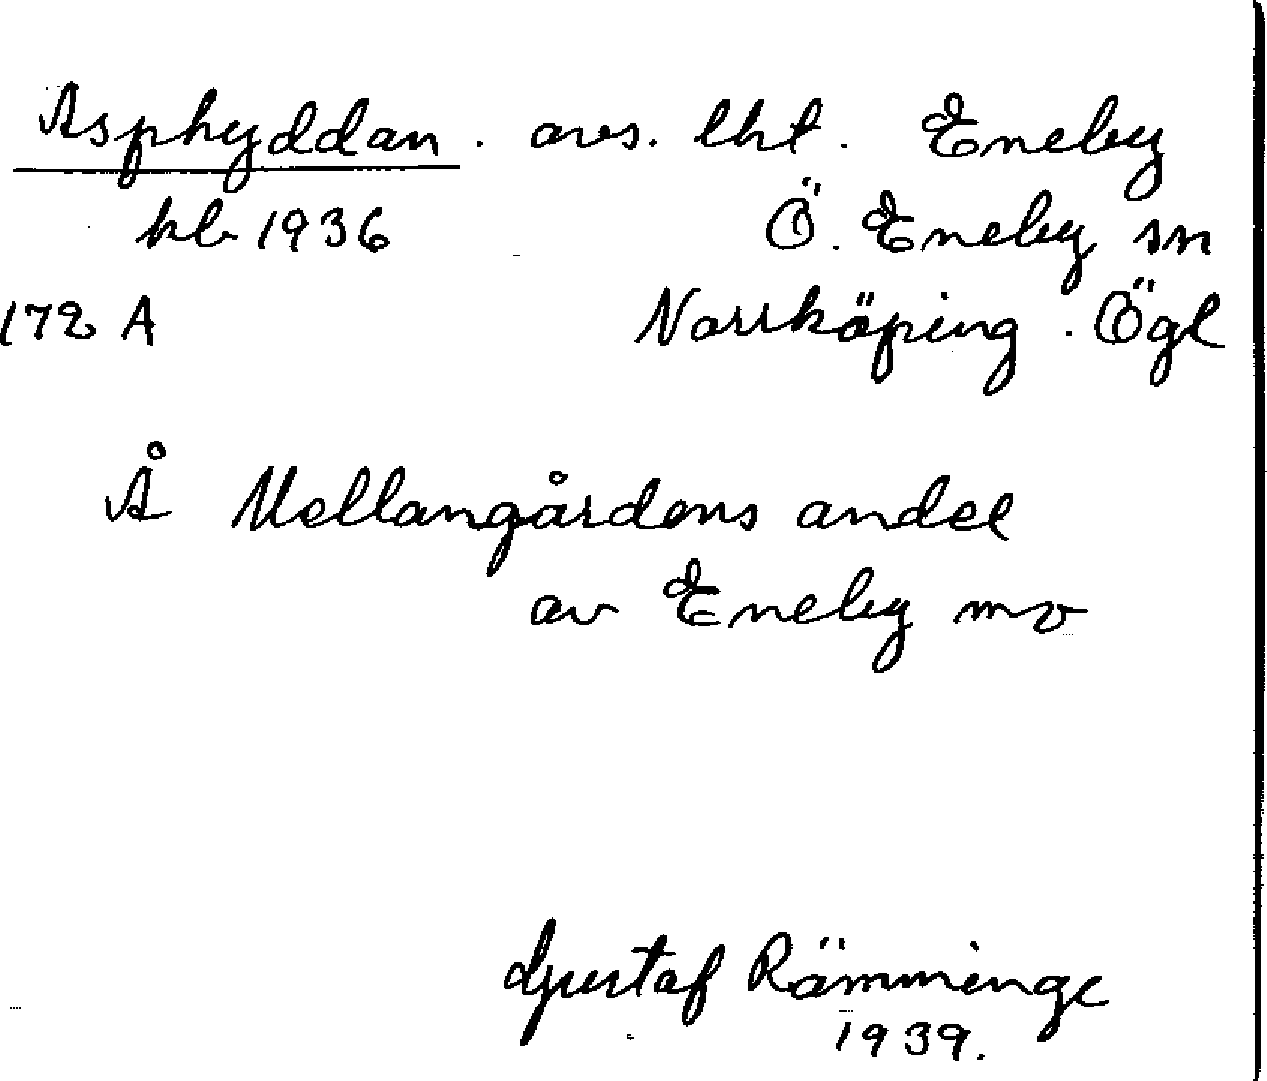 Asphyddan. avs. lht. Eneby
kb 1936 Ö. Eneby sn
172 A Norrköping. Ögl
Å Mellangårdens andel
av Eneby mo
Gustaf Rämminge
1939.